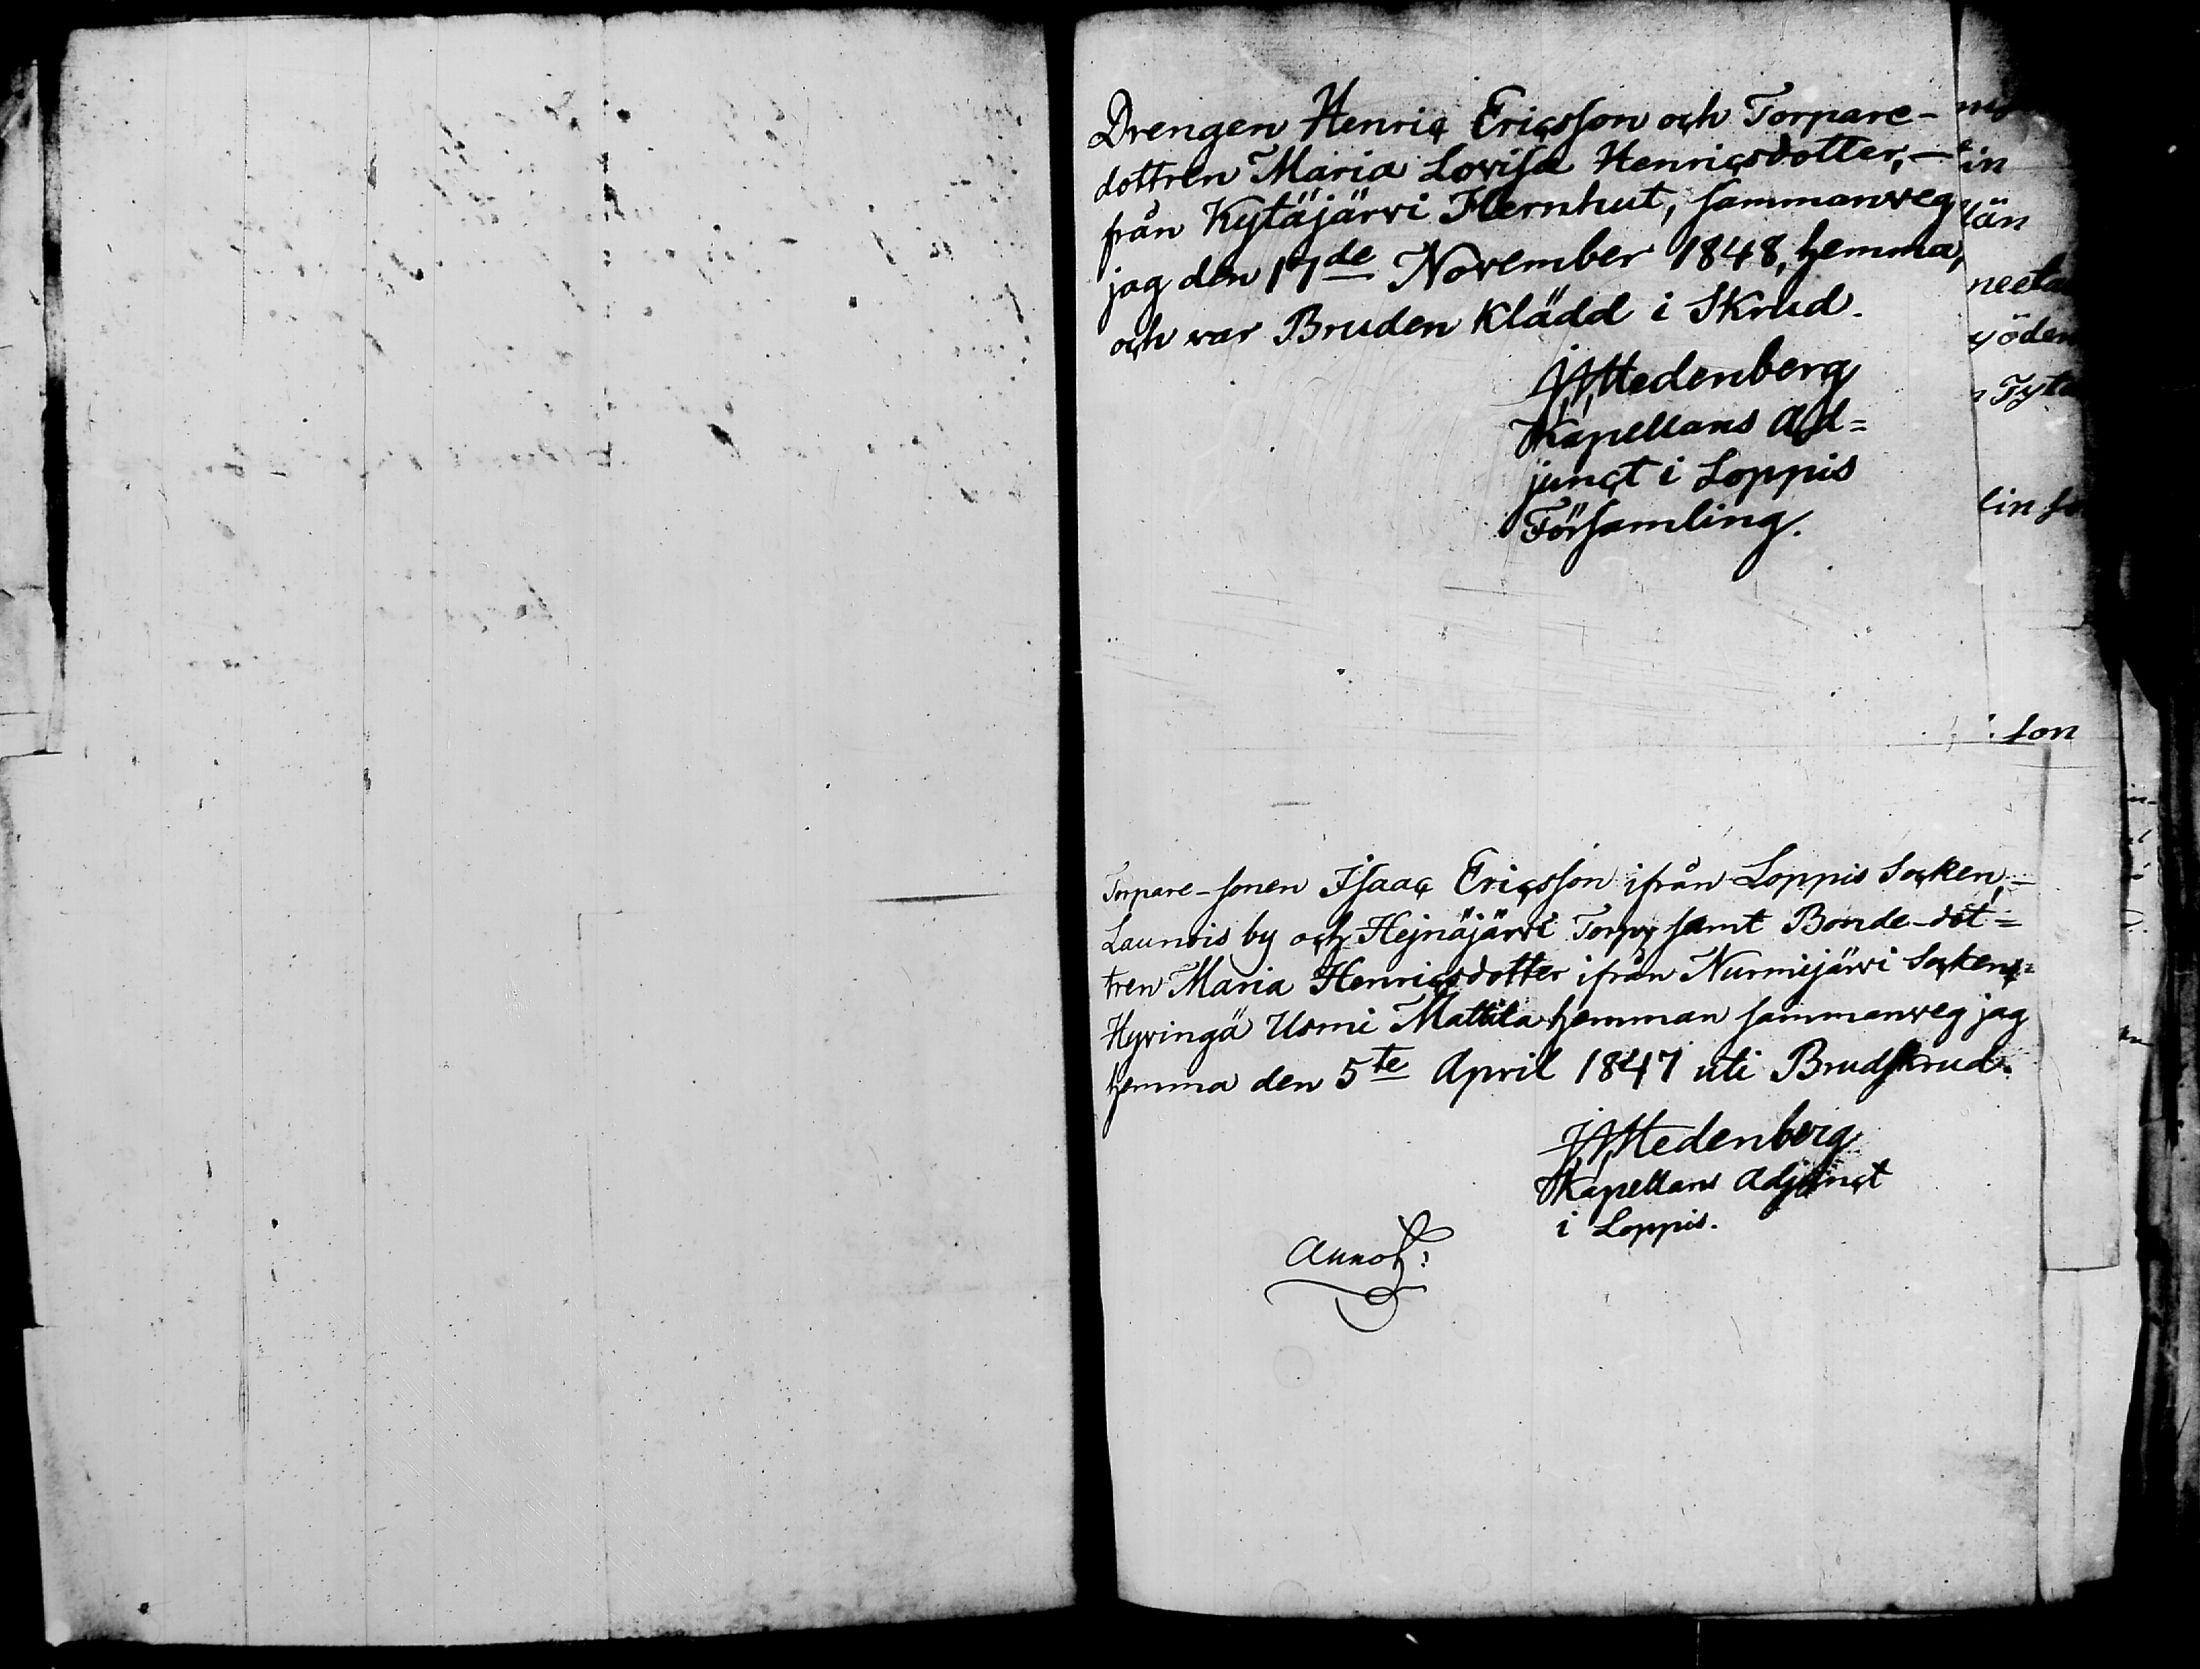 Drengen Henric Ericsson och Torpare-
dottren Maria Lovisa Henricsdotter, —
från Kytäjärvi Hernhut, sammanveg
jag den 17de November 1848, hemma,
och var Bruden klädd i Skrud.
Hedenberg
Kapellans Ad=
junct i Loppis
Församling.
son
Torpare-sonen Isaac Ericsson ifrån Loppis Socken, —
Launois by och Hejnäjärvi Torp, samt Bonde-dot=
tren Maria Henricsdotter ifrån Nurmijärvi Sockens
Hyvingä Usmi Mattila hemman sammanveg jag
hemma den 5te April 1847 uti Brudskrud.
Hedenberg
Kapellans Adjunct
i Loppis.
Annot: